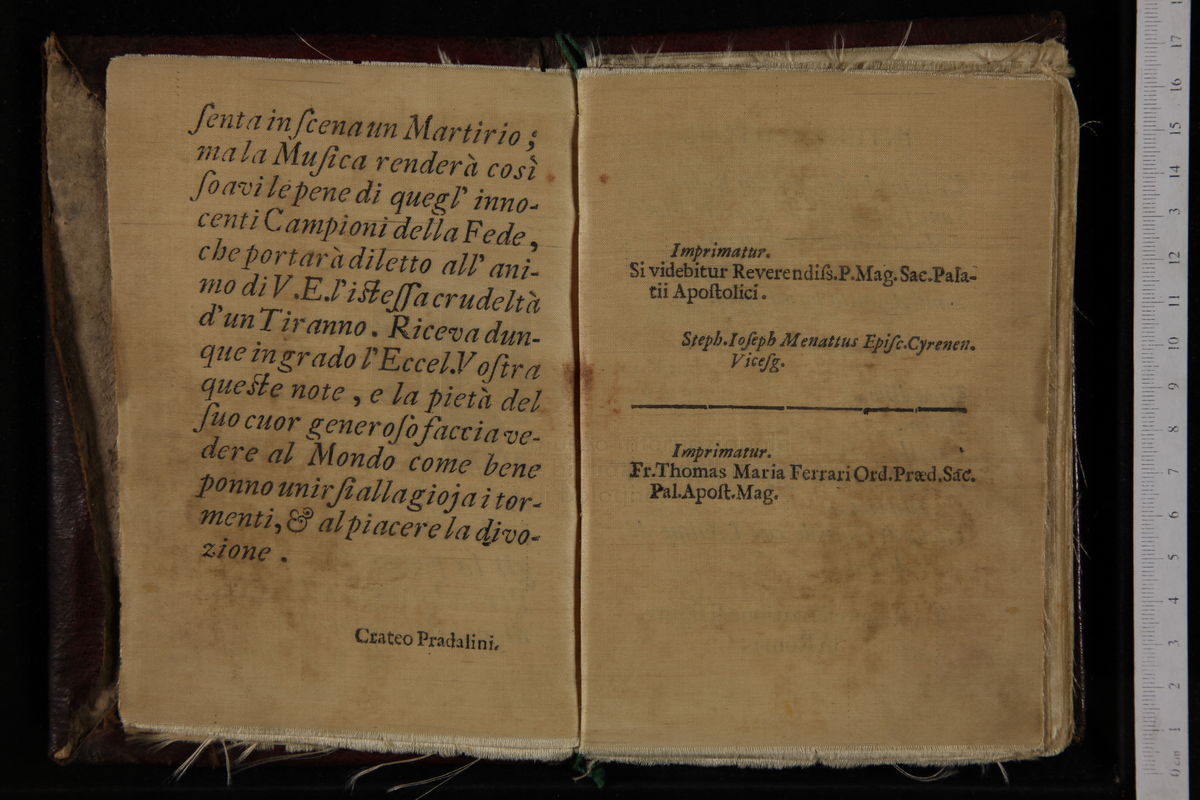 ſenta in ſcena un Martirio;
ma la Muſica renderà così
ſoavi le pene di quegl' inno-
centi Campioni della Fede,
che portarà diletto all' ani-
mo di V.E. l'isteſſa crudeltà
d'un Tiranno. Riceva dun-
que in grado l'Eccel. Voſtra
queste note, e la pietà del
ſuo cuor generoſo faccia ve-
dere al Mondo come bene
ponno unirſi alla gioja i tor-
menti, & al piacere la divo-
zione.
Crateo Pradalini.
Imprimatur.
Si videbitur Reverendiſs.P.Mag.Sac.Pala-
tii Apoſtolici.
Steph.Ioſeph Menattus Epiſc.Cyrenen.
Viceſg.
Imprimatur.
Fr.Thomas Maria Ferrari Ord.Præd.Sac.
Pal.Apoſt.Mag.
0 cm 1 2 3 4 5 6 7 8 9 10 11 12 3 14 15 16 17